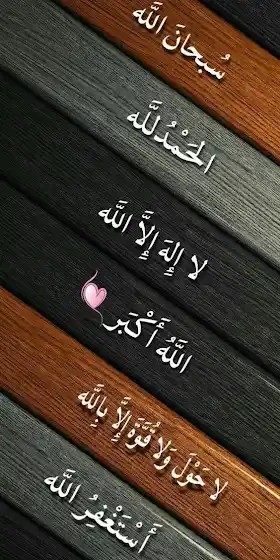 سُبحانَ اللَّه
الحَمْدُللَّه
لا إِلهَ إِلَّا اللَّه
اللَّهُ أَكْبَر
لا حَوْلَ وَلا قُوَّةَ إِلَّا بِاللَّه
أَسْتَغْفِرُ اللَّه